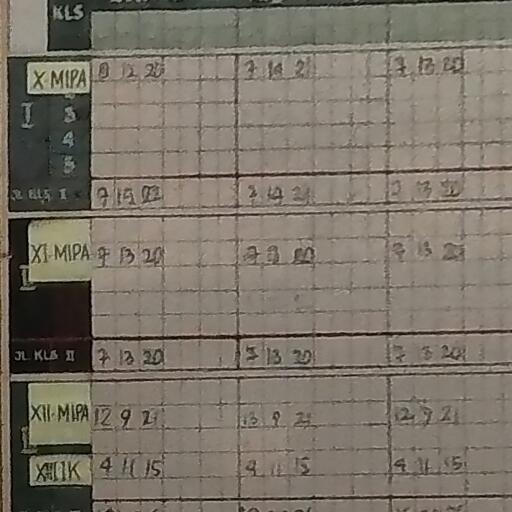 KLS
X MIPA 12 20 7 14 21 7 13 20
I 3
4
5
JL KLS I 7 15 22 7 14 21 13
XI MIPA 7 13 20 7 20 7 13 20
JL KLS II 7 13 20 7 13 20 7 20
XII MIPA 12 9 21 13 9 21 12 9 21
4 11 15 4 11 15 4 11 15